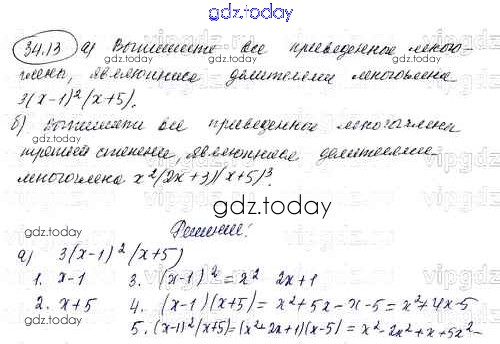 gdz.today
34.13 а) Выпишите все приведенные много-
члены, являющиеся делителями многочлена
3(x-1)²(x+5).
б) Выпишите все приведенные многочлены
третьей степени, являющиеся делителями
многочлена x²(2x+3)(x+5)³.
gdz.today
Решение:
а) 3(x-1)²(x+5)
1. x-1 3. (x-1)² = x² 2x+1
2. x+5 4. (x-1)(x+5) = x²+5x-x-5 = x²+4x-5
5. (x-1)²(x+5)=(x²+2x+1)(x-5) = x²-2x²+x+5x²-